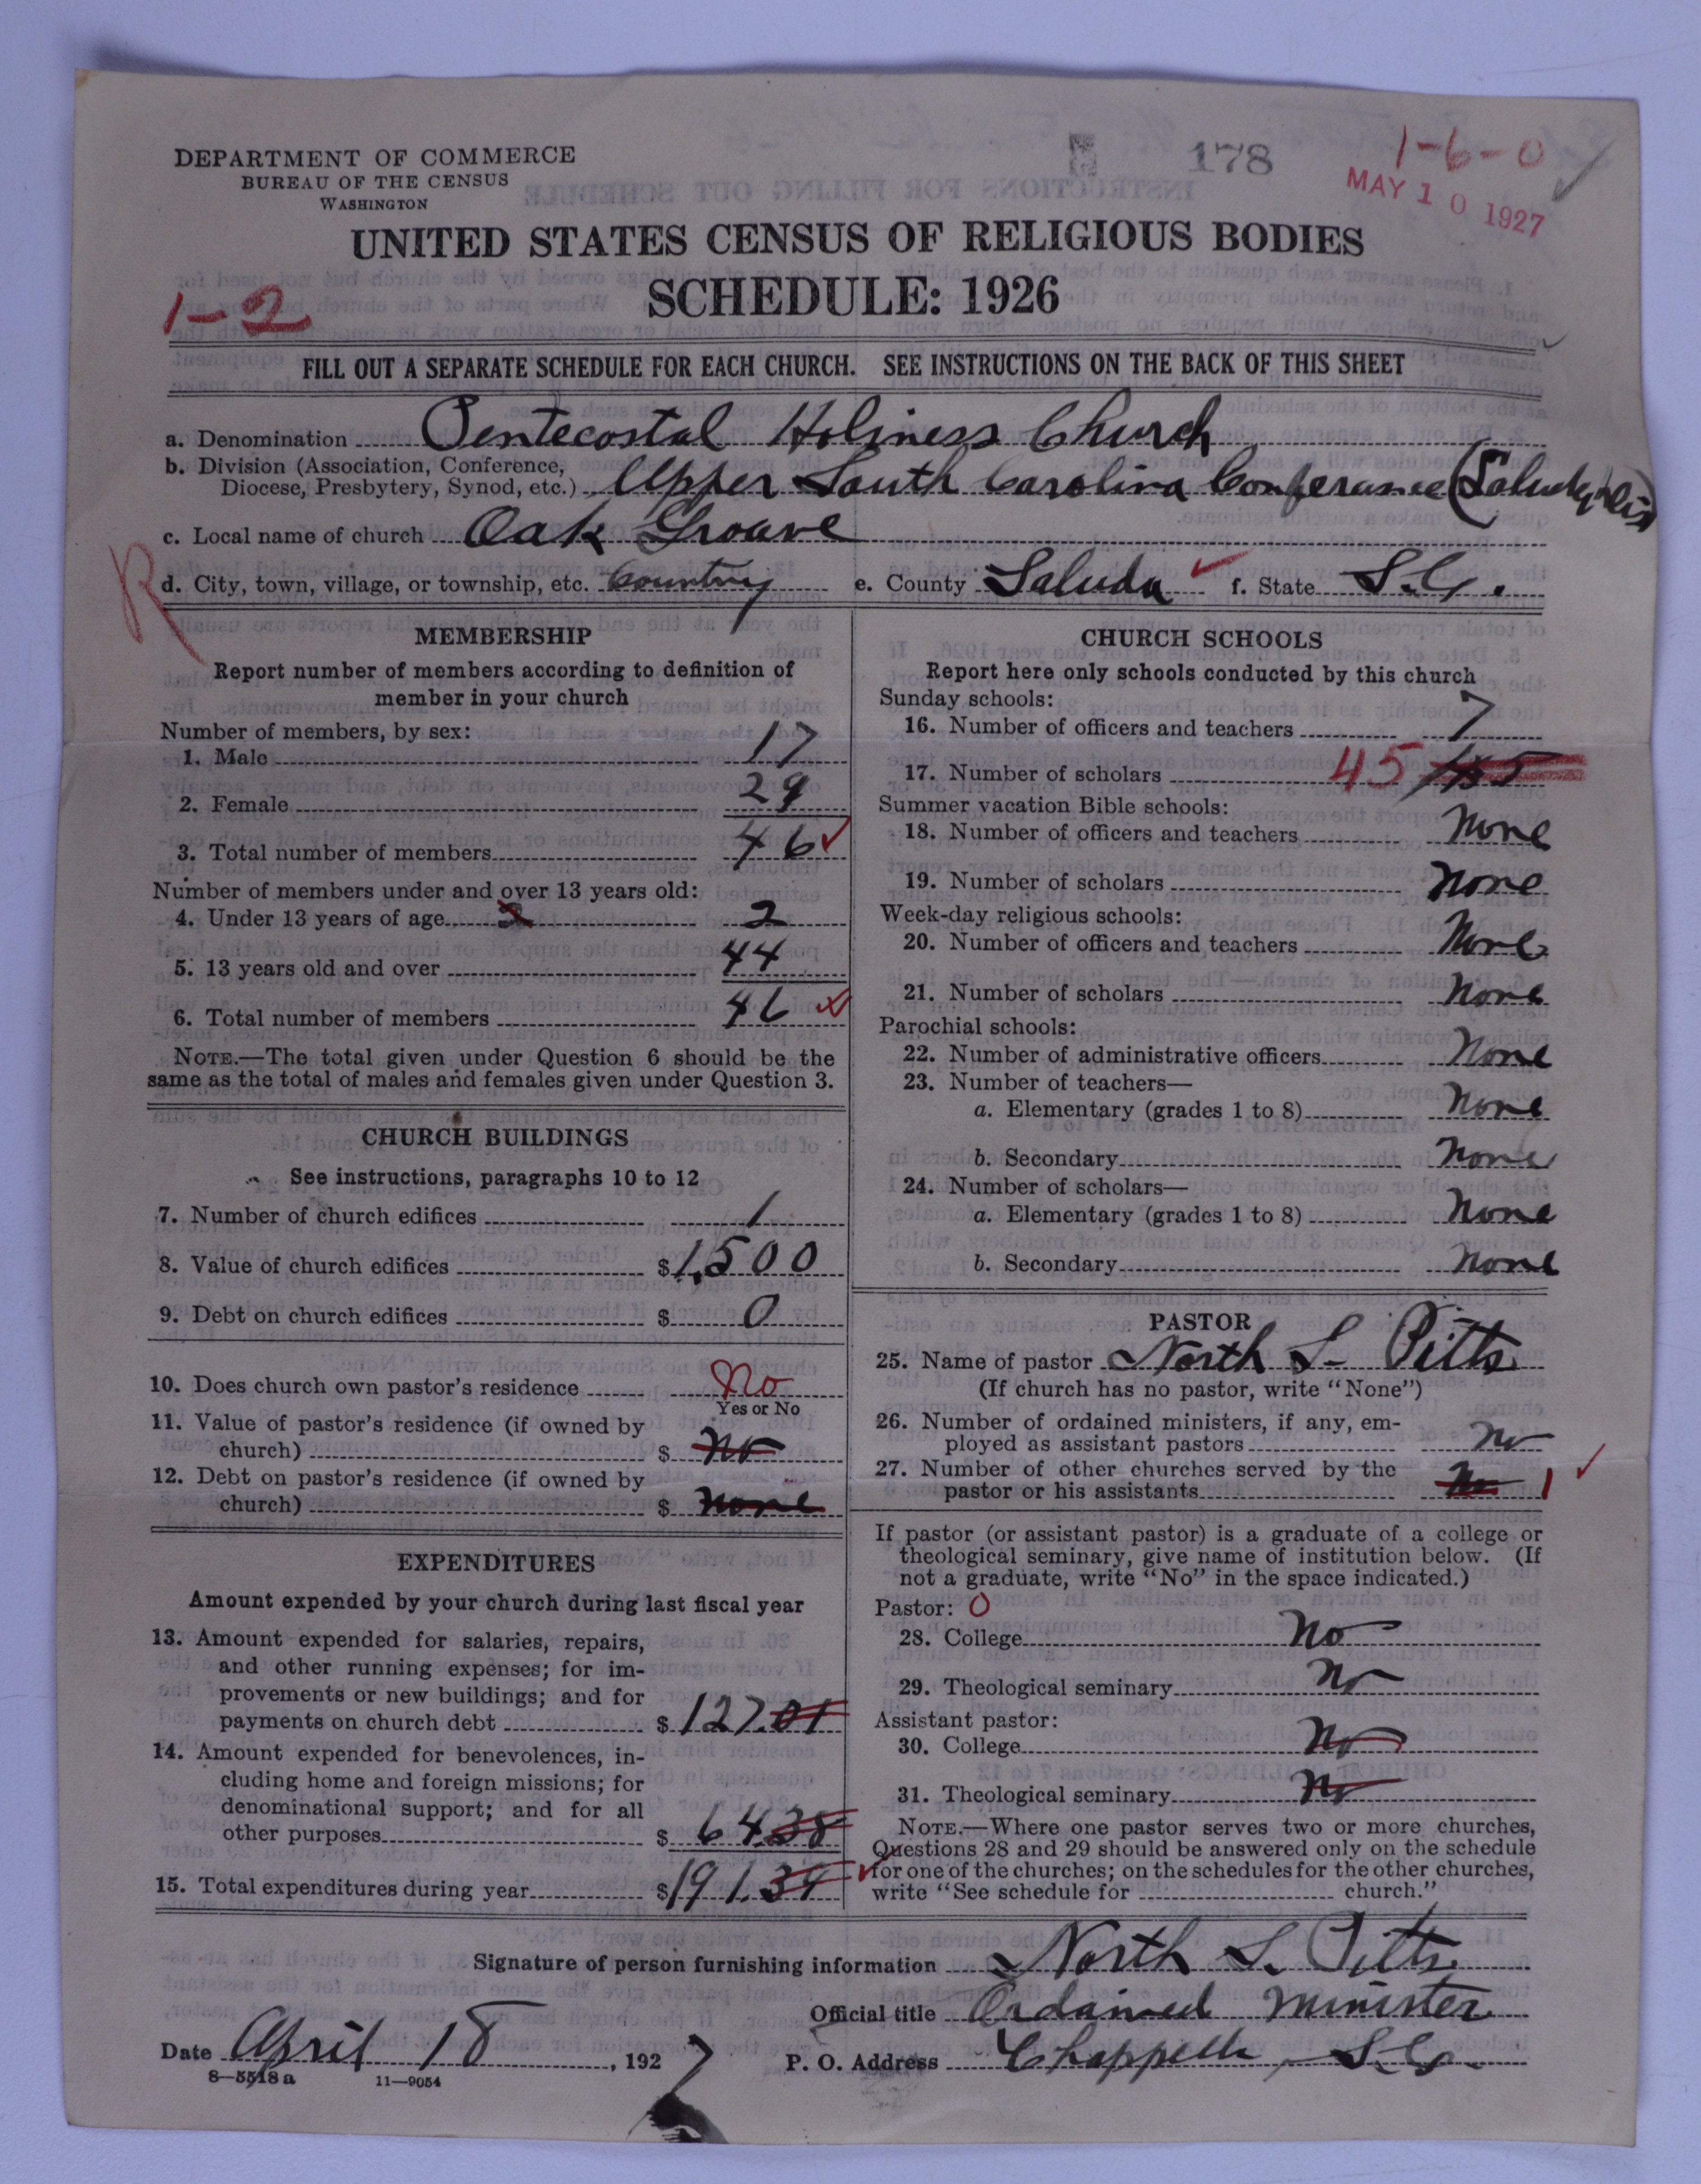 DEPARTMENT OF COMMERCE
BUREAU OF THE CENSUS
WASHINGTON
178
1-6-0
MAY 10 1927
UNITED STATES CENSUS OF RELIGIOUS BODIES
SCHEDULE: 1926
1-2
FILL OUT A SEPARATE SCHEDULE FOR EACH CHURCH. SEE INSTRUCTIONS ON THE BACK OF THIS SHEET
a. Denomination Pentecostal Holiness Church
b. Division (Association, Conference,
Diocese, Presbytery, Synod, etc.) Upper South Carolina Conference (Saluda Dis)
c. Local name of church Oak Groave
R
d. City, town, village, or township, etc. Country e. County Saluda f. State S.C.
MEMBERSHIP
Report number of members according to definition of
member in your church
Number of members, by sex:
1. Male 17
2. Female 29
3. Total number of members 46
Number of members under and over 13 years old:
4. Under 13 years of age 2 2
5. 13 years old and over 44
6. Total number of members 46
NOTE.—The total given under Question 6 should be the
same as the total of males and females given under Question 3.
CHURCH BUILDINGS
See instructions, paragraphs 10 to 12
7. Number of church edifices 1
8. Value of church edifices $1,500
9. Debt on church edifices $ 0
10. Does church own pastor's residence No
Yes or No
11. Value of pastor's residence (if owned by
church) $ no
12. Debt on pastor's residence (if owned by
church) $ none
EXPENDITURES
Amount expended by your church during last fiscal year
13. Amount expended for salaries, repairs,
and other running expenses; for im-
provements or new buildings; and for
payments on church debt $ 127.01
14. Amount expended for benevolences, in-
cluding home and foreign missions; for
denominational support; and for all
other purposes $ 64.38
15. Total expenditures during year $191.39
CHURCH SCHOOLS
Report here only schools conducted by this church
Sunday schools:
16. Number of officers and teachers 7
17. Number of scholars 45
Summer vacation Bible schools:
18. Number of officers and teachers None
19. Number of scholars None
Week-day religious schools:
20. Number of officers and teachers None
21. Number of scholars None
Parochial schools:
22. Number of administrative officers None
23. Number of teachers—
a. Elementary (grades 1 to 8) None
b. Secondary None
24. Number of scholars—
a. Elementary (grades 1 to 8) None
b. Secondary None
PASTOR
25. Name of pastor North L. Pitts
(If church has no pastor, write "None")
26. Number of ordained ministers, if any, em-
ployed as assistant pastors no
27. Number of other churches served by the
pastor or his assistants No 1
If pastor (or assistant pastor) is a graduate of a college or
theological seminary, give name of institution below. (If
not a graduate, write "No" in the space indicated.)
Pastor: 0
28. College No
29. Theological seminary No
Assistant pastor:
30. College No
31. Theological seminary No
NOTE.—Where one pastor serves two or more churches,
Questions 28 and 29 should be answered only on the schedule
for one of the churches; on the schedules for the other churches,
write "See schedule for church."
Signature of person furnishing information North L. Pitts
Official title Ordained Minister
Date April 18, 1927 P. O. Address Chappells, S.C.
8—5518a 11—9054